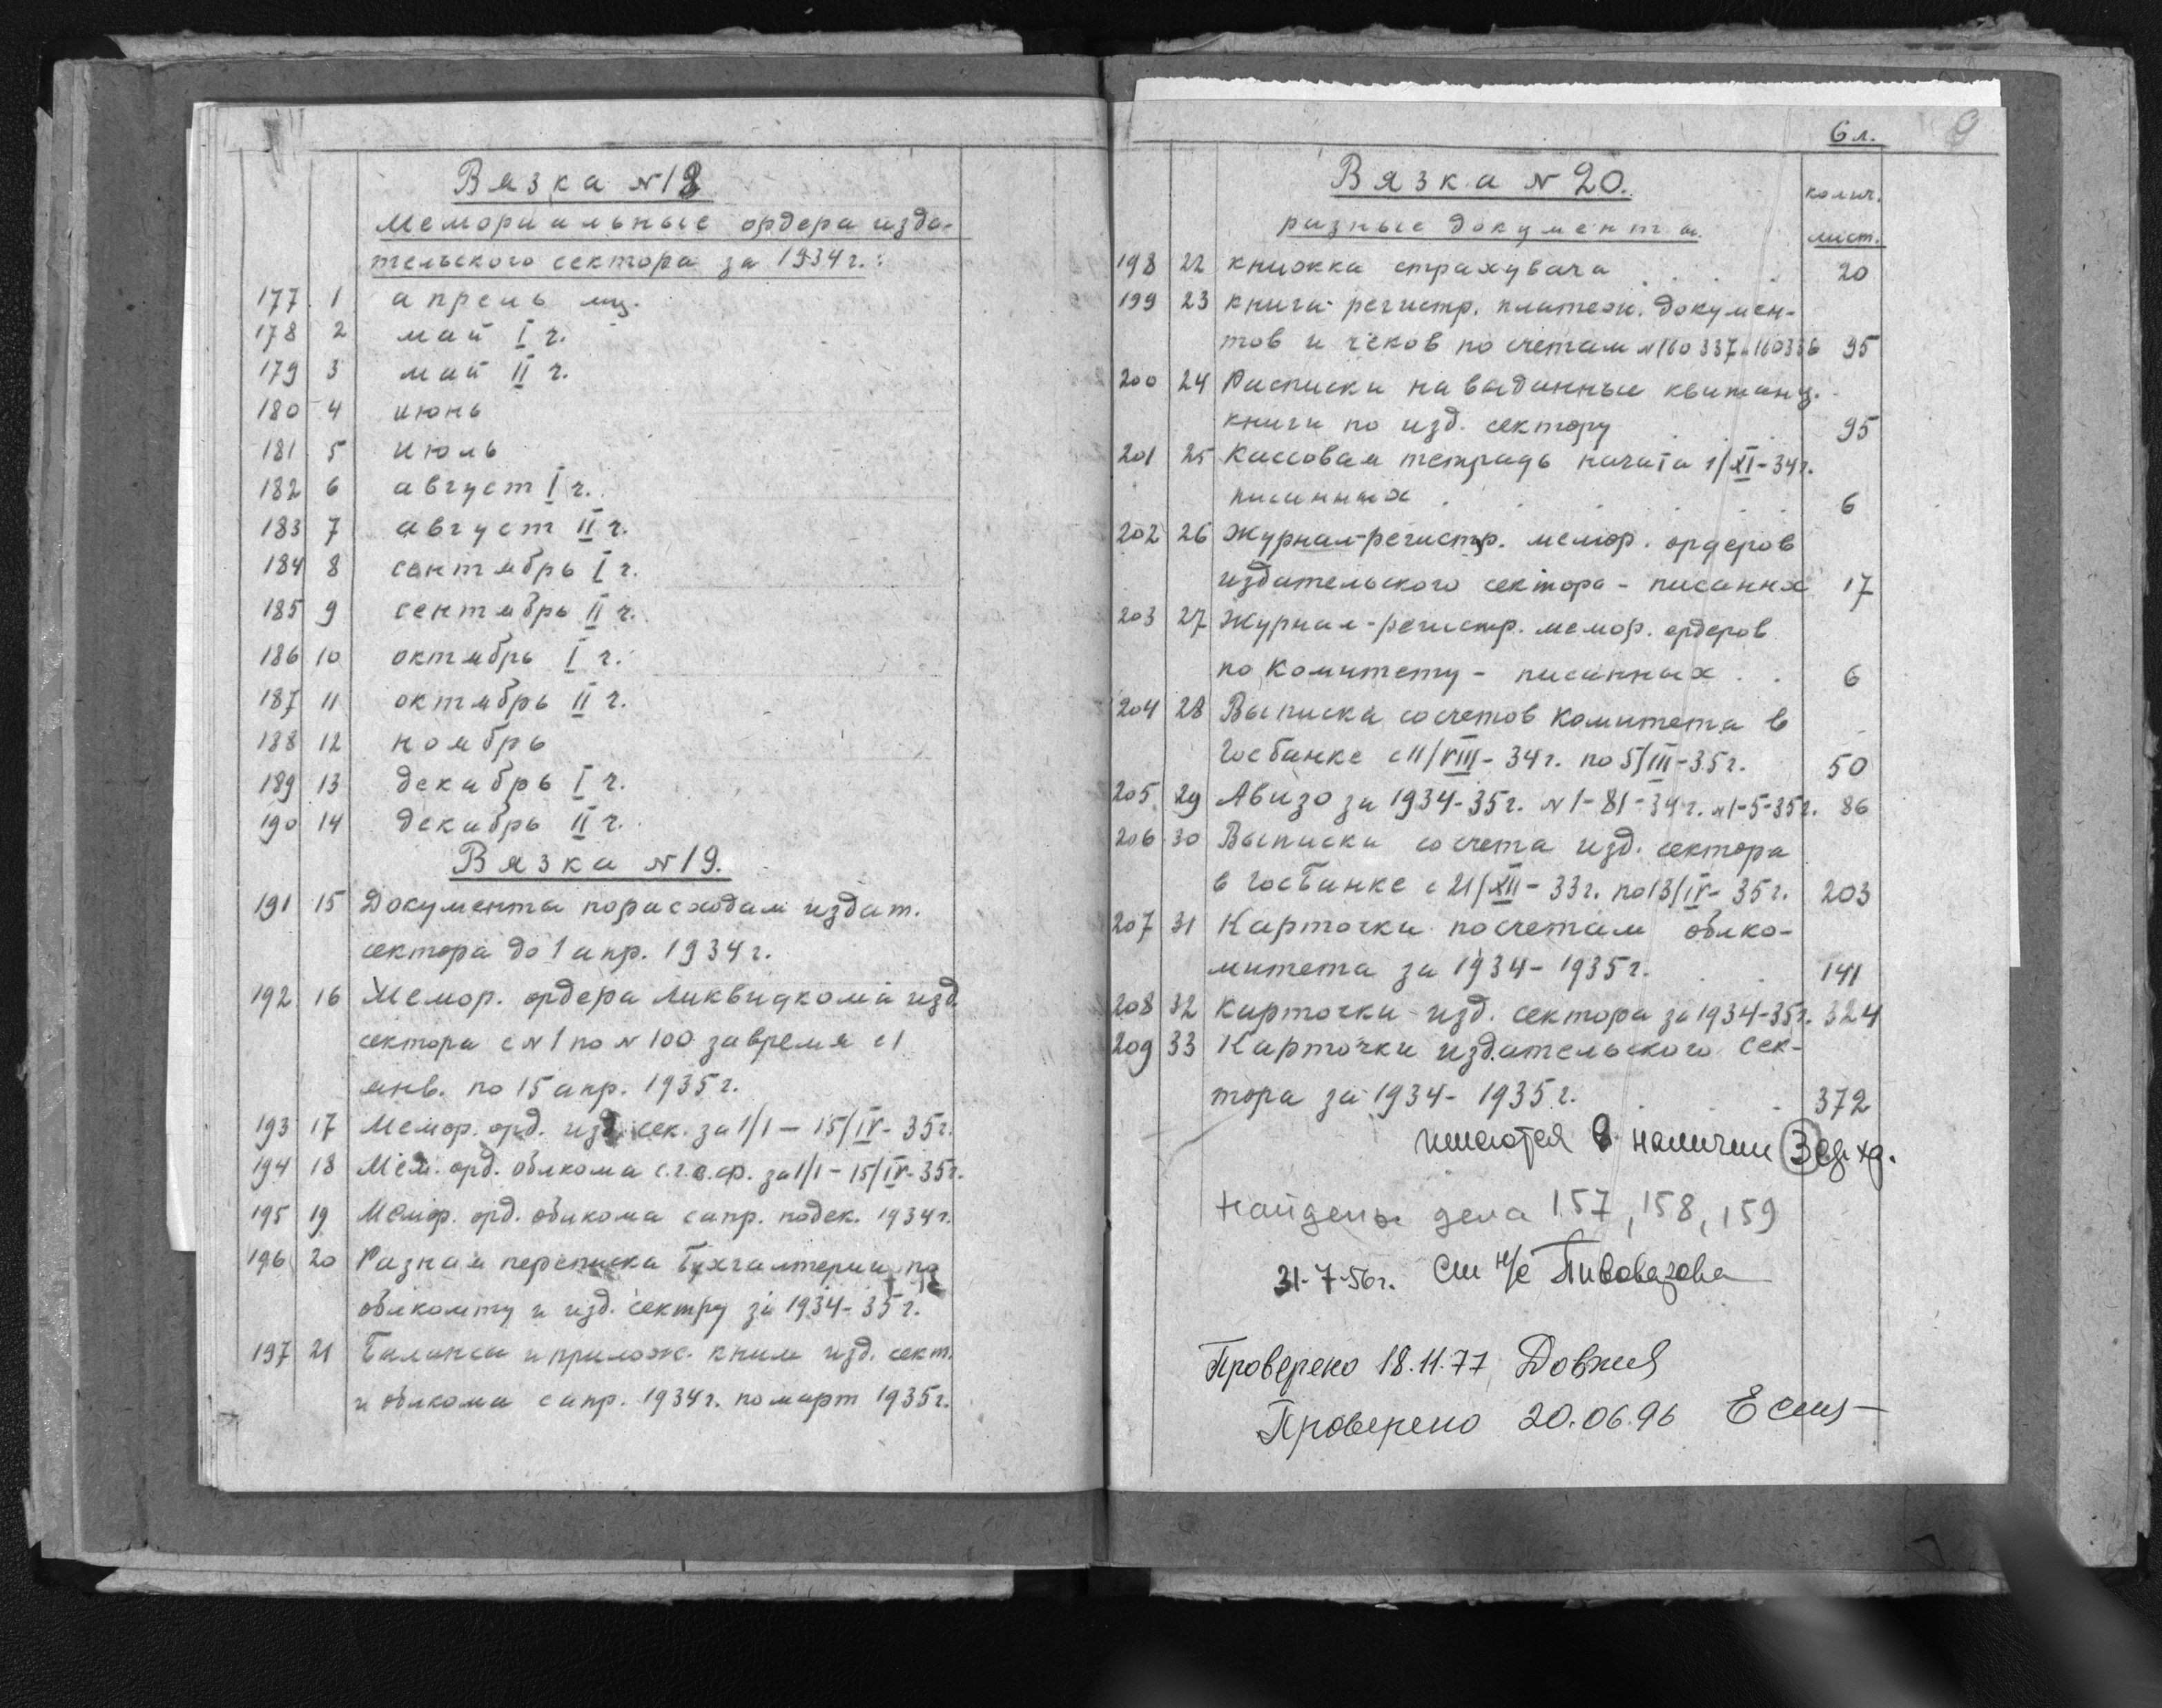 Вязка N 18
Мемориальные ордера изда-
тельского сектора за 1934 г.:
177 1 апрель мц.
178 2 май I ч.
179 3 май II ч.
180 4 июнь
181 5 июль
182 6 август I ч.
183 7 август II ч.
184 8 сентябрь I ч.
185 9 сентябрь II ч.
186 10 октябрь I ч.
187 11 октябрь II ч.
188 12 ноябрь
189 13 декабрь I ч.
190 14 декабрь II ч.
Вязка N 19.
191 15 Документы по расходам издат.
сектора до 1 апр. 1934 г.
192 16 Мемор. ордера Ликвидкома изд.
сектора с N 1 по N 100 за время с 1
янв. по 15 апр. 1935 г.
193 17 Мемор. орд. изд. сек. за 1/I – 15/IV - 35 г.
194 18 Мем. орд. облкома с.г.о.ф. за 1/I – 15/IV - 35 г.
195 19 Мемор. орд. облкома с апр. по дек. 1934 г.
196 20 Разная переписка Бухгалтерии по
облкомту и изд. сектру за 1934-35 г.
197 21 Балансы и прилож. к ним изд. сект.
и облкома с апр. 1934 г. по март 1935 г.
6 л. 9
Вязка N 20.
разные документы.
колич.
лист.
198 22 книжка страхувача 20
199 23 книга регистр. платежн. докумен-
тов и чеков по счетам N 160337 и 160336 95
200 24 Расписки на выданные квитанц.
книги по изд. сектору 95
201 25 Кассовая тетрадь начата 1/XI-34 г.
писанных 6
202 26 Журнал-регистр. мемор. ордеров
издательского сектора - писанных 17
203 27 Журнал-регистр. мемор. ордеров
по Комитету - писанных 6
204 28 Выписка со счетов Комитета в
Госбанке с 11/VIII - 34 г. по 5/III - 35 г. 50
205 29 Авизо за 1934-35 г. N 1-81-34 г. N 1-5-35 г. 86
206 30 Выписки со счета изд. сектора
в госбанке с 21/XII - 33 г. по 13/IV - 35 г. 203
207 31 Карточки по счетам облко-
митета за 1934-1935 г. 141
208 32 Карточки изд. сектора за 1934-35 г. 324
209 33 Карточки издательского сек-
тора за 1934-1935 г. 372
имеются в наличии 3 ед. хр.
Найдены дела 157, 158, 159
31-7-56 г. См н/с Пивоварова
Проверено 18.11.77
Проверено 20.06.96